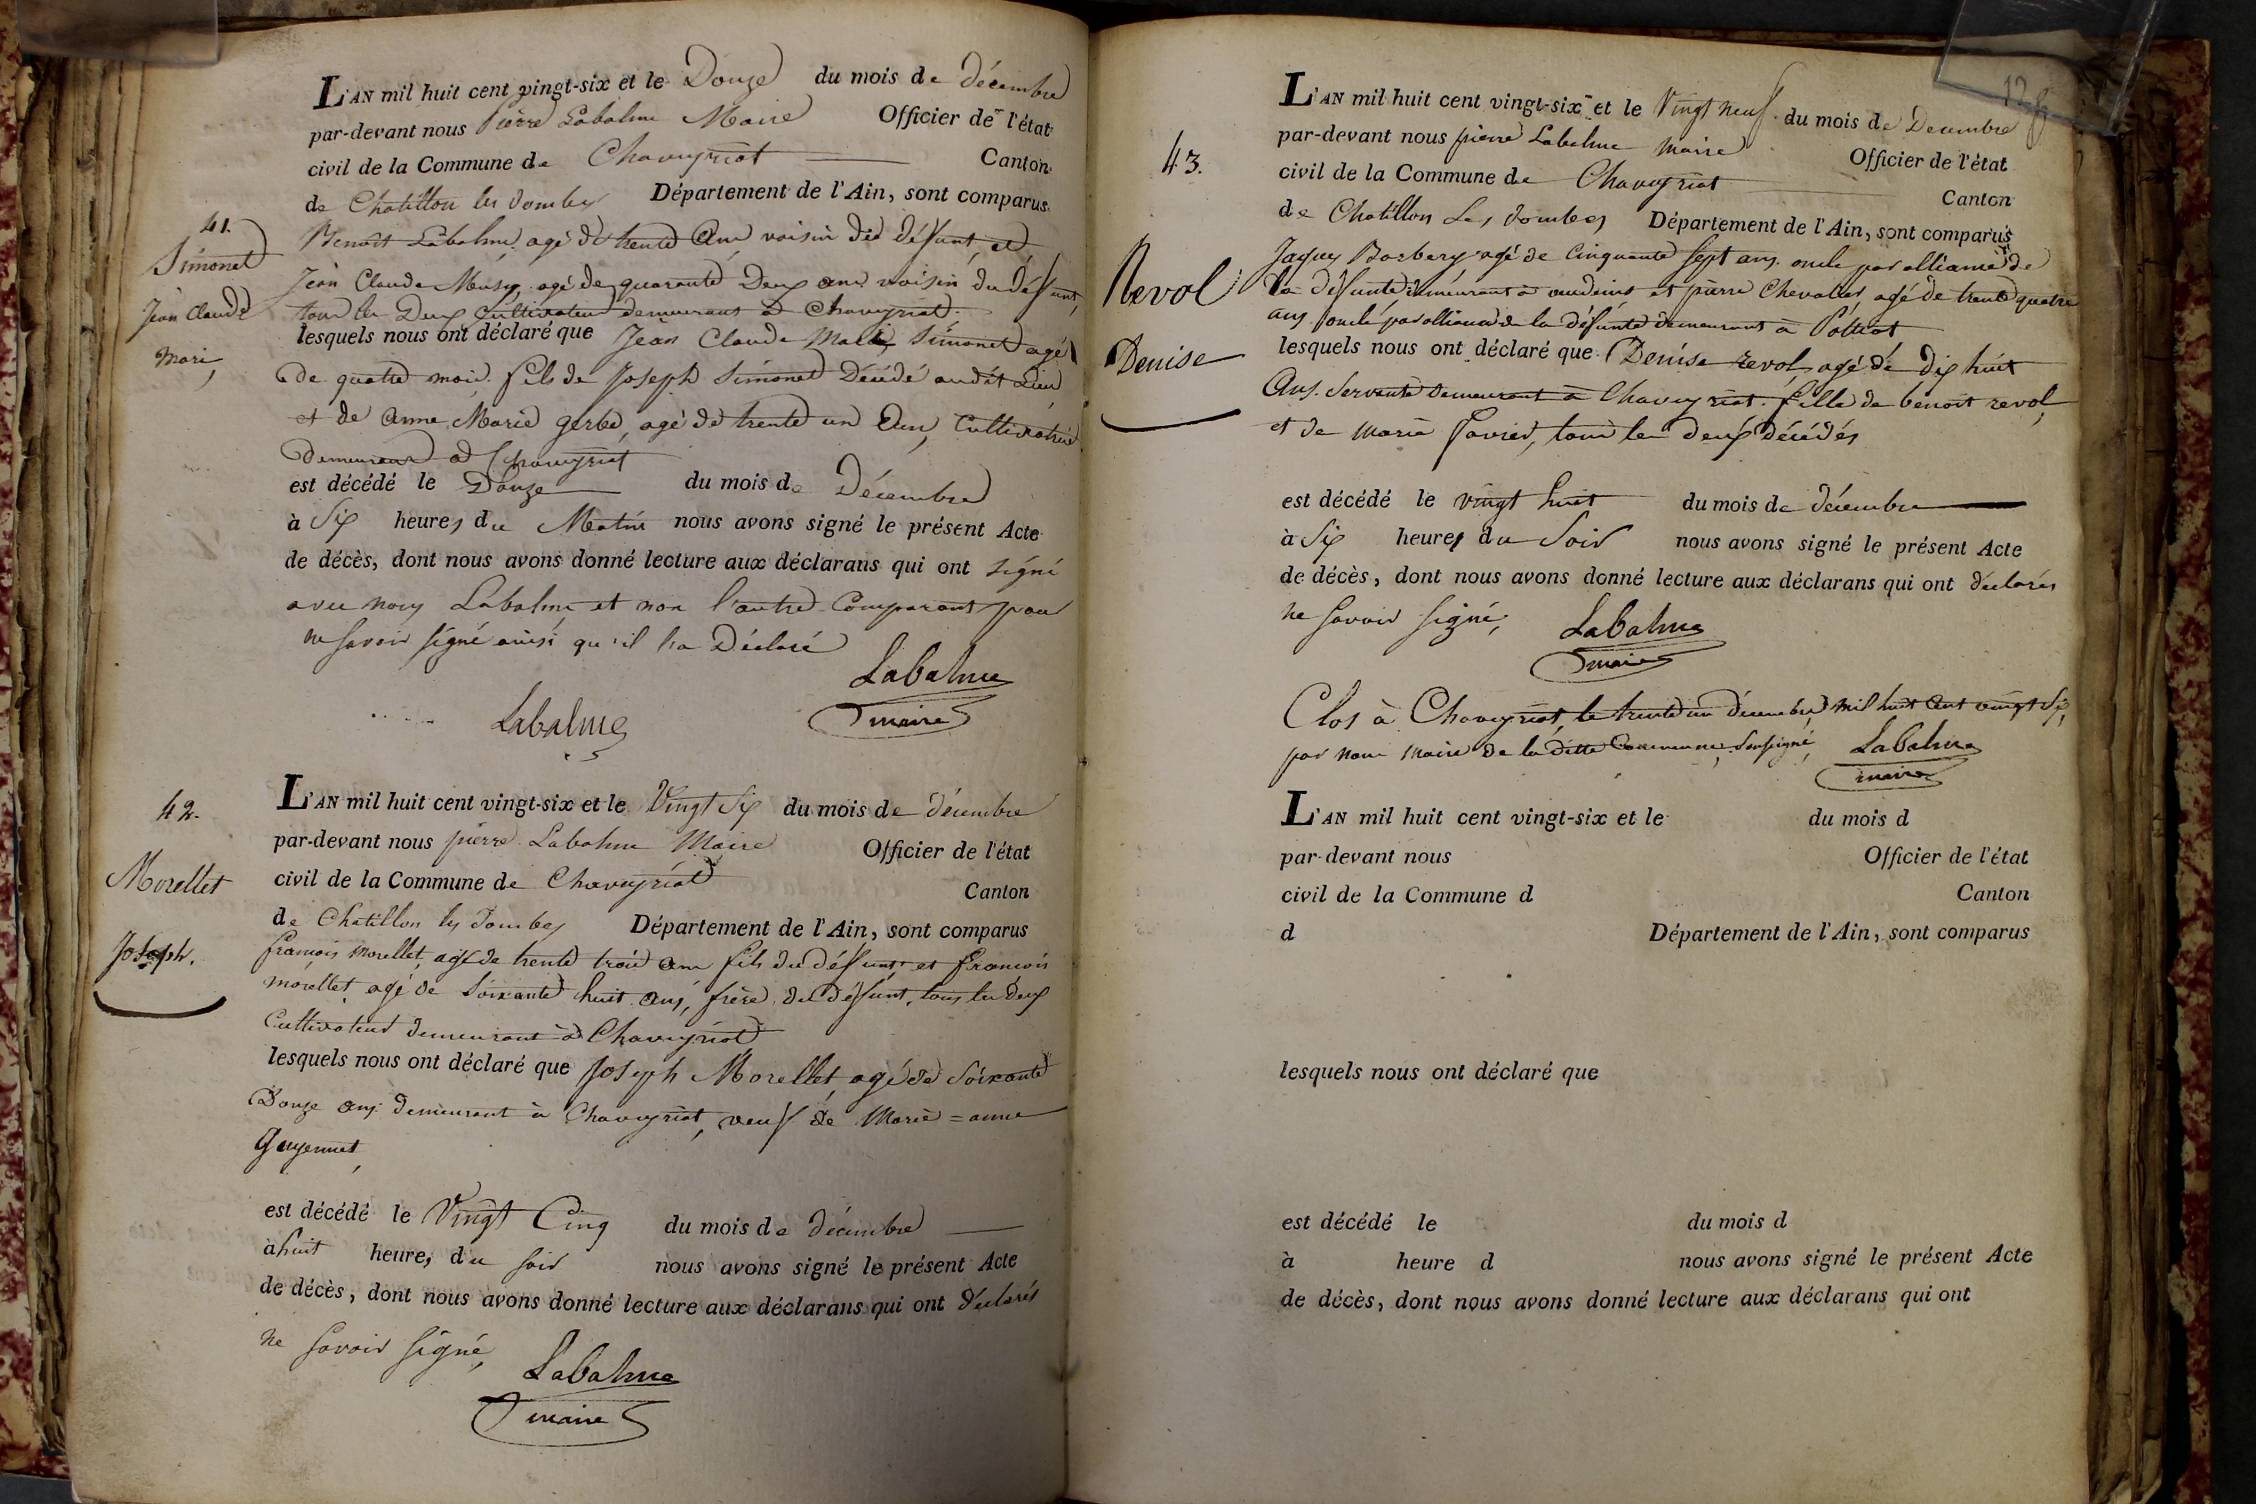 L'AN mil huit cent vingt-six et le Douze du mois de décembre
par-devant nous Pierre Labalme Maire Officier de l'état
civil de la Commune de Chaveyriat Canton
de Chatillon les dombes Département de l'Ain, sont comparus
41.
Simonet
Jean Claude
Mari
Benoit Labalme agé de trente Ans voisin du défunt, et
Jean Claude agé de quarante Deux ans voisin du défunt,
tous les Deux Cultivateur demeurans à Chaveyriat.
lesquels nous ont déclaré que Jean Claude Simonet agé
de quatre mois fils de Joseph Simonet Décédé audit Lieu
et de Anne Marie gerbe, agé de trente un Ans, Cultivatrice
demeurant à Chaveyriat
est décédé le Douze du mois de Décembre
à Six heures du Matin nous avons signé le présent Acte
de décès, dont nous avons donné lecture aux déclarans qui ont signé
avec nous Labalme et non l'autre Comparant pour
ne savoir signé ainsi qu'il l'a Déclaré
Labalme
maire
Labalme
42.
Morellet
Joseph.
L'AN mil huit cent vingt-six et le Vingt Six du mois de décembre
par-devant nous pierre Labalme Maire Officier de l'état
civil de la Commune de Chaveyriat Canton
de Chatillon les Dombes Département de l'Ain, sont comparus
francois Morellet, agé de trente trois ans fils du défunt et francois
morellet agé de Soixante huit ans, frère du défunt, tous les deux
Cultivateurs demeurant à Chaveyriat
lesquels nous ont déclaré que Joseph Morellet, agé de Soixante
Douze ans demeurant à Chaveyriat, veuf de Marie = anne
est décédé le Vingt Cinq du mois de décembre
à huit heures du soir nous avons signé le présent Acte
de décès, dont nous avons donné lecture aux déclarans qui ont déclarés
ne savoir signé,
Labalme
maire
43.
Revol
Denise
L'AN mil huit cent vingt-six et le Vingt neuf du mois de Decembre
par-devant nous pierre Labalme Maire Officier de l'état
civil de la Commune de Chaveyriat Canton
de Chatillon Les dombes Département de l'Ain, sont comparus
Jaques agé de Cinquante Sept ans oncle par alliance de
la défunte demeurant à et pierre Chevalier agé de trente quatre
ans oncle par alliance de la défunte demeurant à
lesquels nous ont déclaré que Denise revol agé de dix huit
Ans. Servante demeurant à Chaveyriat fille de benoit revol,
et de Marie favier, tous les deux décédés
est décédé le vingt huit du mois de décembre
à Six heures du Soir nous avons signé le présent Acte
de décès, dont nous avons donné lecture aux déclarans qui ont déclarés
ne savoir signé,
Labalme
maire
Clos à Chaveyriat, le trente un décembre mil huit cent vingt Six,
par nous maire de la ditte Commune, Soussigné,
Labalme
maire
L'AN mil huit cent vingt-six et le du mois d
par-devant nous Officier de l'état
civil de la Commune d Canton
d Département de l'Ain, sont comparus
lesquels nous ont déclaré que
est décédé le du mois d
à heure d nous avons signé le présent Acte
de décès, dont nous avons donné lecture aux déclarans qui ont